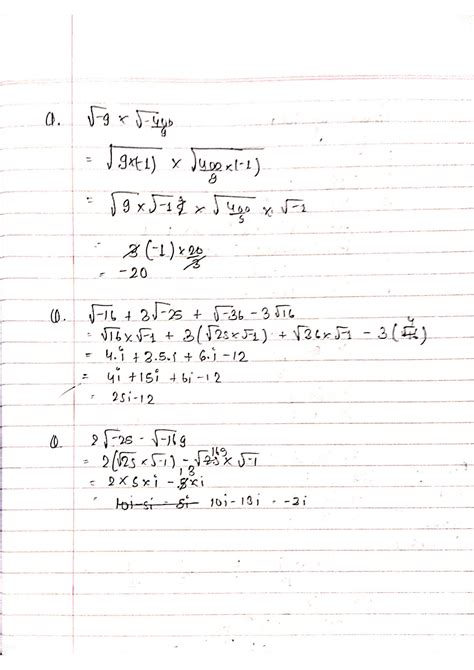 Q. √-9 × √-400/9
= √9×(-1) × √400/9 ×(-1)
= √9 × √-1 × √400/9 × √-1
= 3 (-1) × 20/3
= -20
Q. √-16 + 3√-25 + √-36 - 3√16
= √16 × √-1 + 3(√25 × √-1) + √36 × √-1 - 3(
= 4.i + 3.5.i + 6.i - 12
= 4i + 15i + 6i - 12
= 25i - 12
Q. 2√-25 - √-169
= 2(√25 × √-1) - √169 × √-1
= 2 × 5 × i - 13 × i
10i - 13i = -3i